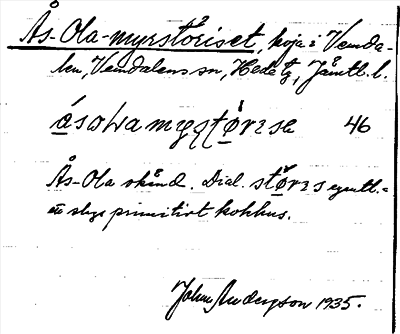 Ås-Ola-myrstöriset, koja i Vemda-
len, Vemdalens sn, Hede tg, Jämtl. l.
46
Ås-Ola okänd. Dial. egentl.=
ett slags primitivt kokhus.
John Andersson 1935.